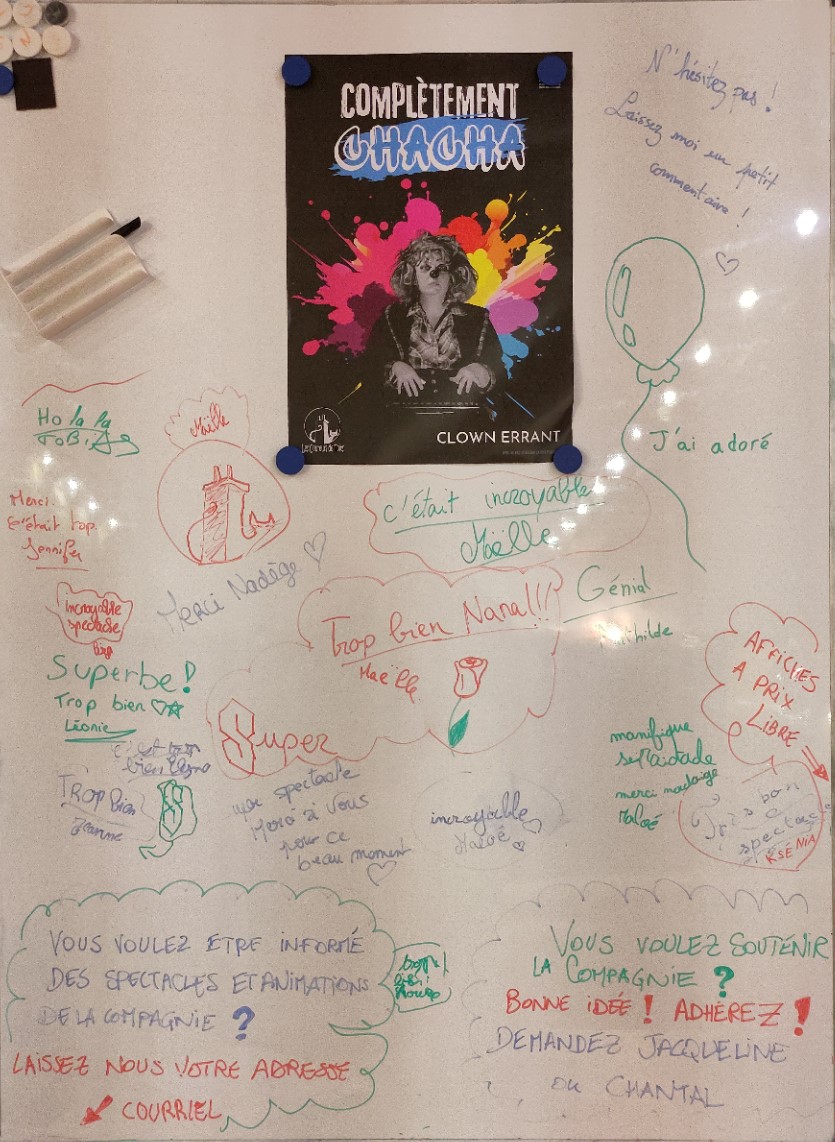 COMPLÈTEMENT
CHACHA
CLOWN ERRANT
N'hésitez pas !
Laissez moi un petit
commentaire !
J'ai adoré
Ho la la
TOBIAS
Maëlle
Merci.
C'était top.
Jennifer
c'était incroyable
Maëlle
Merci Nadège
Génial
Mathilde
Trop bien Nana!!!
Maëlle
incroyable
spectacle
Superbe!
Trop bien
Léonie
Super
AFFICHES
A PRIX
LIBRE
c'est trop
bien
Trop bien
Jeanne
S
spectacle
Merci à vous
pour ce
beau moment
incroyable
manifique
merci madaige
Maloé
Très bon
spectacle
KSENIA
VOUS VOULEZ ETRE INFORMÉ
DES SPECTACLES ET ANIMATIONS
DE LA COMPAGNIE ?
LAISSEZ NOUS VOTRE ADRESSE
COURRIEL
trop
bien!
VOUS VOULEZ SOUTENIR
LA COMPAGNIE ?
BONNE IDÉE ! ADHÉREZ !
DEMANDEZ JACQUELINE
OU CHANTAL